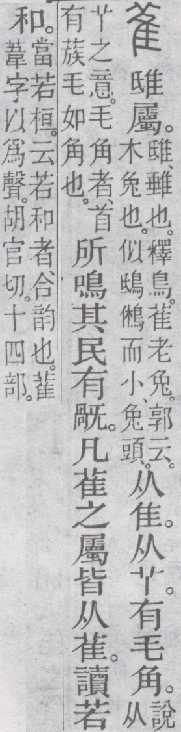 萑 䧑屬。䧑、𨿠也。釋鳥。萑、老兔。郭云。木兔也。似鴟鵂而小、兔頭。从隹。从𦫳。有毛角。說从
𦫳之意。毛角者、首有蔟毛如角也。所鳴其民有旤。凡萑之屬皆从萑。讀若
和。當若桓。云若和者、合韵也。萑葦字以爲聲。胡官切。十四部。